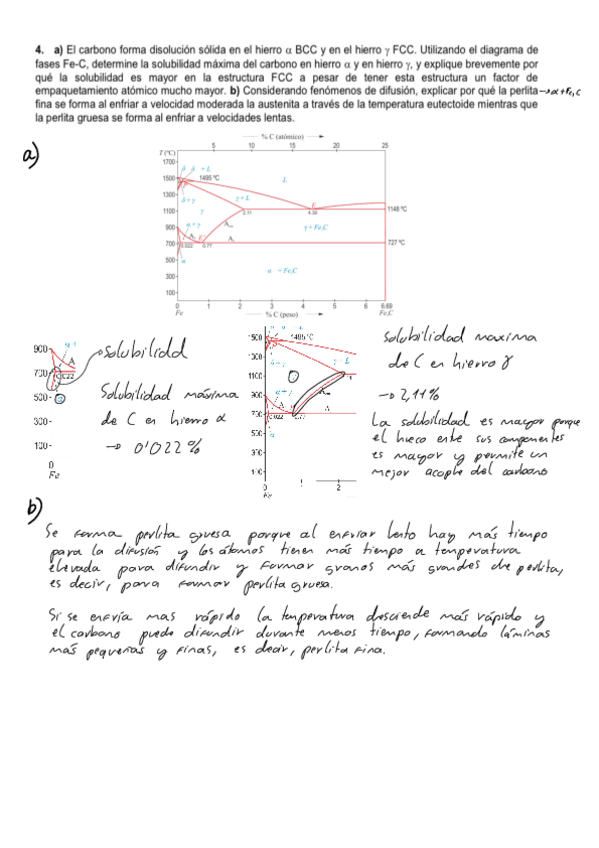 4. a) El carbono forma disolución sólida en el hierro α BCC y en el hierro γ FCC. Utilizando el diagrama de
fases Fe-C, determine la solubilidad máxima del carbono en hierro α y en hierro γ, y explique brevemente por
qué la solubilidad es mayor en la estructura FCC a pesar de tener esta estructura un factor de
empaquetamiento atómico mucho mayor. b) Considerando fenómenos de difusión, explicar por qué la perlita → α+Fe3C
fina se forma al enfriar a velocidad moderada la austenita a través de la temperatura eutectoide mientras que
la perlita gruesa se forma al enfriar a velocidades lentas.
a)
% C (atómico)
5 10 15 20 25
T (ºC)
1700
1500
1300
1100
900
700
500
300
100
δ δ + L
1495 ºC
L
δ+γ
γ+L
γ
E
2.11
4.30
1148 ºC
α+γ
A
γ+Fe3C
0.022
0.77
727 ºC
α
α + Fe3C
0 1 2 3 4 5 6 6.69
Fe
% C (peso)
Fe3C
900
700
500
300
100
0
Fe
→ solubilidd
Solubilidad máxima
de C en hierro α
→ 0'022%
1500
1300
1100
900
700
500
300
0 1 2
1495 ºC
Solubilidad maxima
de C en hierro γ
→ 2,11%
La solubilidad es mayor porque
el hueco ente sus componentes
es mayor y permite un
mejor acople del carbono
b)
Se forma perlita gruesa porque al enfriar lento hay más tiempo
para la difusión y los átomos tienen más tiempo a temperatura
elevada para difundir y formar granos más grandes de perlita,
es decir, para formar perlita gruesa.
Si se enfría mas rápido la temperatura desciende más rápido y
el carbono puede difundir durante menos tiempo, formando láminas
más pequeñas y finas, es decir, perlita fina.